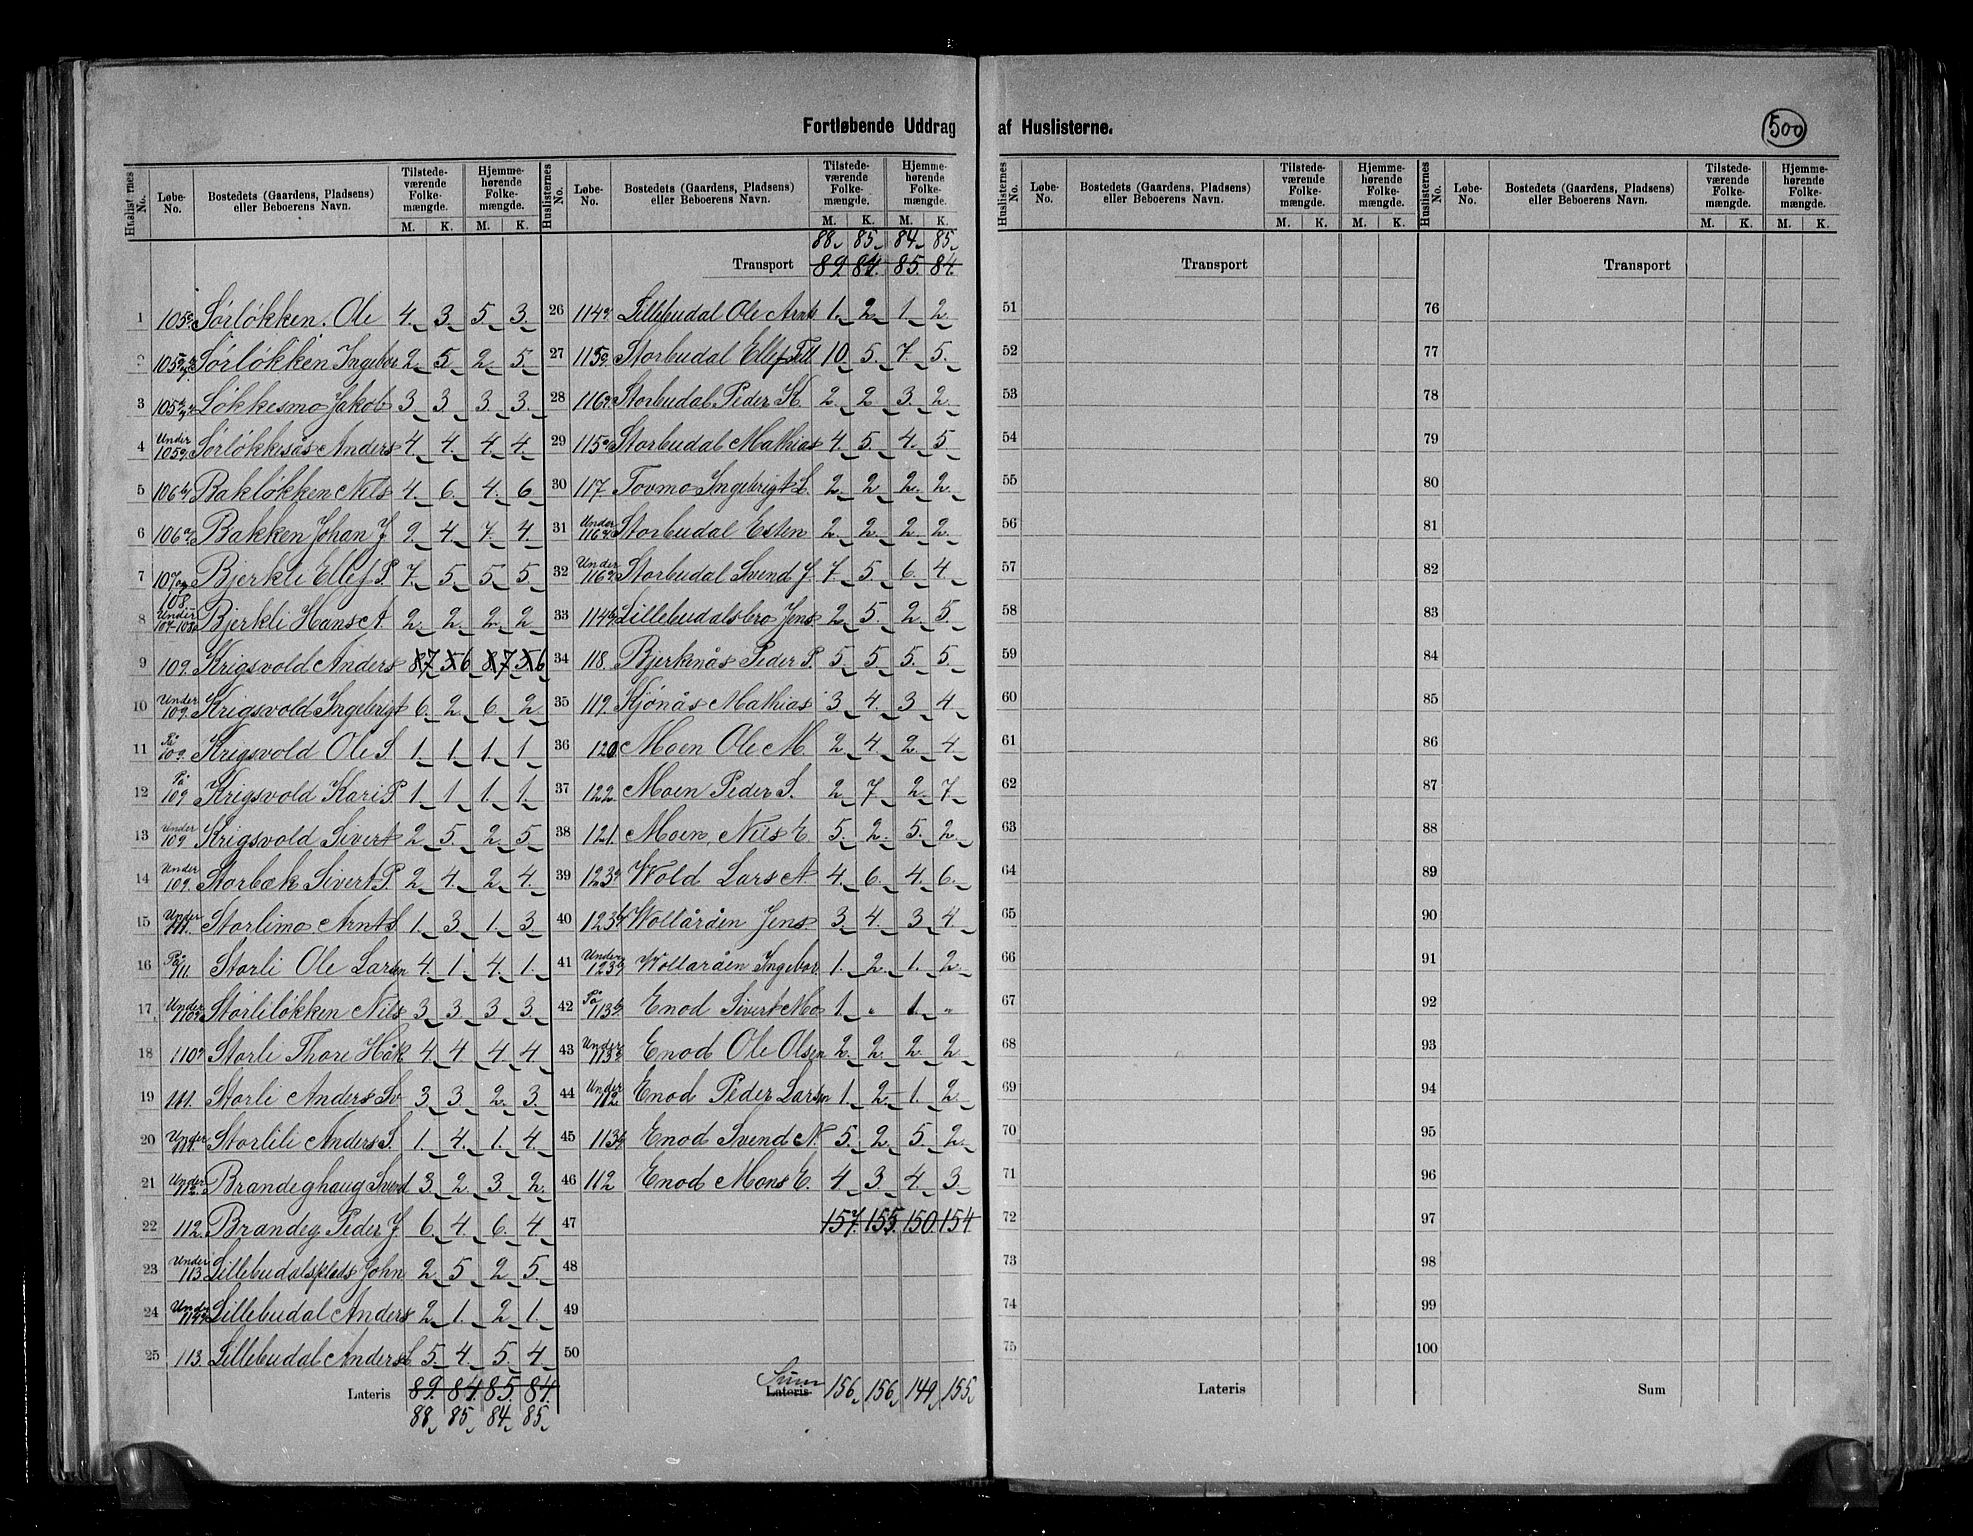 Fortløbende Uddrag af Huslisterne.
500
Huslisternes No. | Løbe-No. | Bostedets (Gaardens, Pladsens) eller Beboerens Navn. | Tilstedeværende Folkemængde. M. K. | Hjemmehørende Folkemængde. M. K.
1 105 Sørløkken. Ole 4. 3. 5. 3.
2 105 Sørløkken Ingebor 2. 5. 2. 5.
3 105 Løkkesmo Jakob 3. 3. 3. 3.
4 Under 105 Sørløkkesås Anders 4. 4. 4. 4.
5 106 Bakløkken Nils 4. 6. 4. 6.
6 106 Bakken Johan J 9. 4. 7. 4.
7 107 og 108. Bjerkli Ellef P. 7. 5. 5. 5.
8 Under 107-108 Bjerkli Hans A. 2. 2. 2. 2
9 109. Krigsvold Anders 8 7 5 6 8 7 5 6
10 Under 109. Krigsvold Ingebrigt 6. 2. 6. 2
11 På 109. Krigsvold Ole S. 1. 1. 1. 1.
12 På 109 Krigsvold Kari P. 1. 1. 1. 1.
13 Under 109 Krigsvold Sivert 2. 5. 2. 5
14 Under 109. Storbæk Sivert P. 2. 4. 2. 4.
15 Under 111. Storlimo Arnt S. 1. 3. 1. 3.
16 På 111. Storli Ole Larsen 4. 1. 4. 1.
17 Under 110 Storliløkken Nils 3. 3. 3. 3.
18 110 Storli Thore Håk 4. 4. 4. 4
19 111. Storli Anders Sv 3. 3. 2. 3.
20 Under 111. Storlili Anders S. 1. 4. 1. 4
21 Under 112. Brandeghaug Svend 3. 2. 3. 2.
22 112. Brandeg. Peder J 6. 4. 6. 4
23 Under 113 Lillebudalsplads John 2. 5. 2. 5.
24 Under 114 Lillebudal Anders 2. 1. 2. 1.
25 113. Lillebudal Anders L. 5. 4. 5. 4.
Lateris 89. 84. 85. 84.
88. 85. 84. 85.
Huslisternes No. | Løbe-No. | Bostedets (Gaardens, Pladsens) eller Beboerens Navn. | Tilstedeværende Folkemængde. M. K. | Hjemmehørende Folkemængde. M. K.
88. 85. 84. 85.
Transport 89. 84. 85. 84.
26 114 Lillebudal Ole Arnts 1. 2. 1. 2.
27 115 Storbudal Ellef 10. 5. 7. 5.
28 116 Storbudal Peder K. 2. 2 3. 2.
29 115 Storbudal Mathias 4. 5. 4. 5.
30 117. Tovmo Ingebrigt L. 2. 2. 2. 2.
31 Under 116 Storbudal Esten 2. 2. 2. 2.
32 Under 116 Storbudal Svend J. 7. 5. 6. 4.
33 114 Lillebudalsbro Jens 2. 5. 2. 5.
34 118. Bjerknås Peder P. 5. 5. 5. 5.
35 119. Kjønås Mathias 3. 4. 3. 4.
36 120 Moen Ole M. 2. 4. 2. 4.
37 122. Moen Peder S. 2. 7. 2. 7.
38 121. Moen, Nils E. 5. 2. 5. 2.
39 123 Wold Lars A. 4. 6. 4. 6.
40 123 Wollåråen Jens. 3. 4. 3. 4.
41 Under 123 Wollaråen Ingebor 1. 2. 1. 2.
42 På 113 Enod Sivert Mo 1. " 1. "
43 Under 113 Enod Ole Olsen 2. 2. 2. 2.
44 Under 112 Enod Peder Larsen 1. 2. 1. 2.
45 113 Enod Svend N. 5. 2. 5. 2.
46 112 Enod Mons E. 4. 3. 4. 3.
47 157. 155. 150. 154.
48
49
50
Sum Lateris 156. 156. 149. 155.
Huslisternes No. | Løbe-No. | Bostedets (Gaardens, Pladsens) eller Beboerens Navn. | Tilstedeværende Folkemængde. M. K. | Hjemmehørende Folkemængde. M. K.
Transport
51
52
53
54
55
56
57
58
59
60
61
62
63
64
65
66
67
68
69
70
71
72
73
74
75
Lateris
Huslisternes No. | Løbe-No. | Bostedets (Gaardens, Pladsens) eller Beboerens Navn. | Tilstedeværende Folkemængde. M. K. | Hjemmehørende Folkemængde. M. K.
Transport
76
77
78
79
80
81
82
83
84
85
86
87
88
89
90
91
92
93
94
95
96
97
98
99
100
Sum